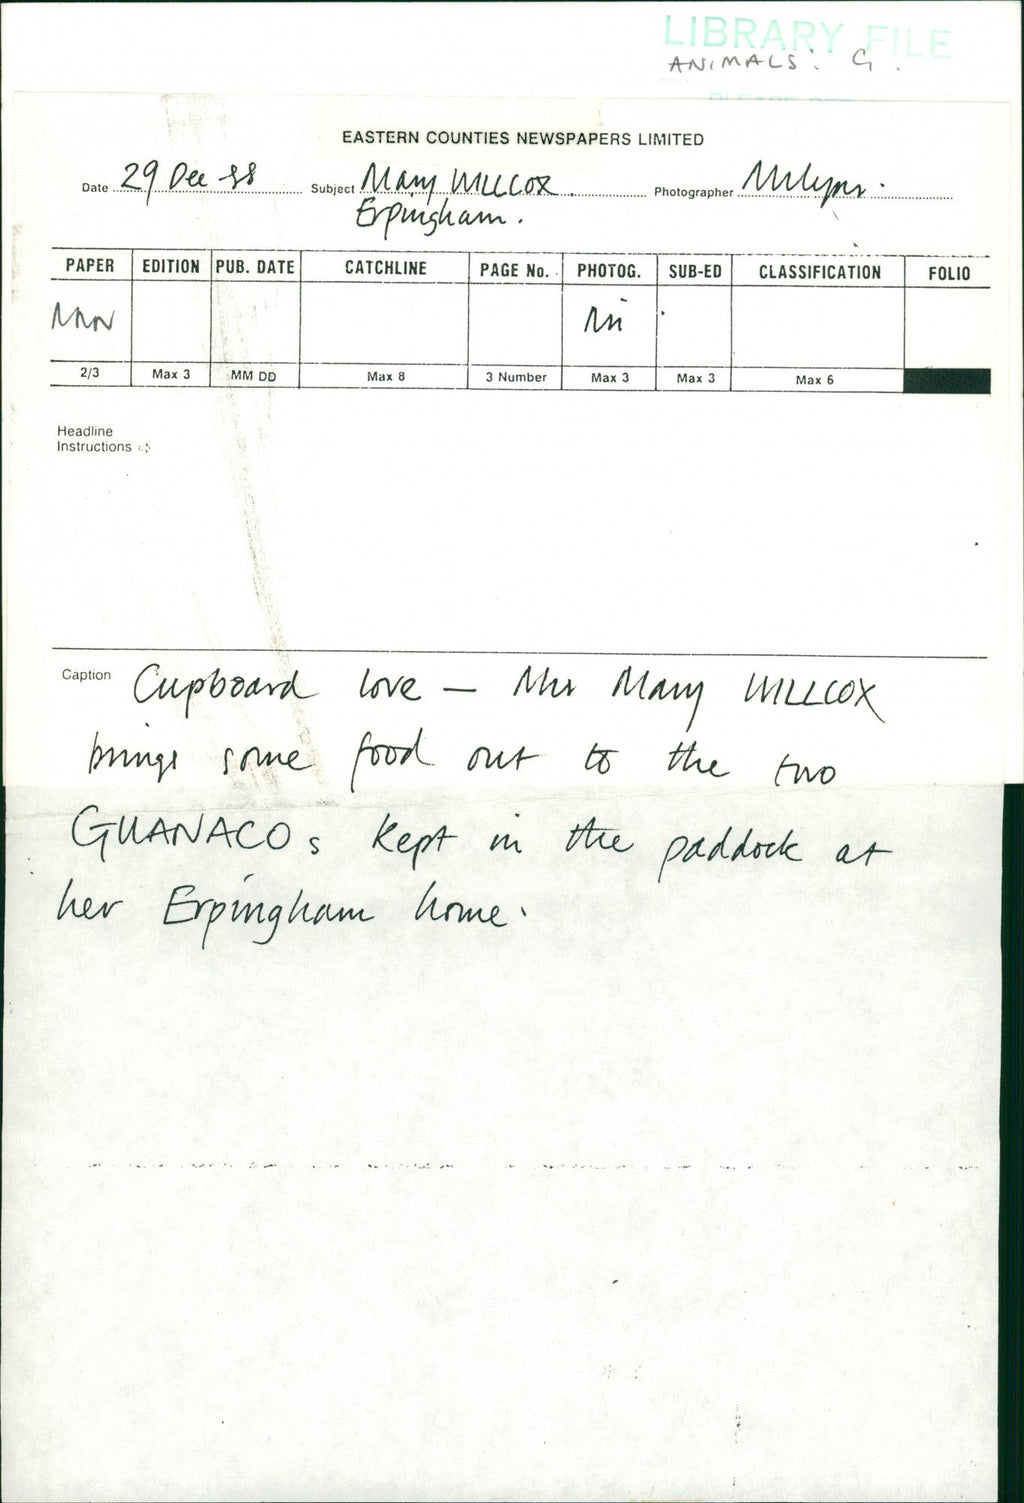 LIBRARY FILE
ANIMALS: G.
EASTERN COUNTIES NEWSPAPERS LIMITED
Date 29 Dec 88 Subject Mary WILLCOX. Photographer
Erpingham.
PAPER EDITION PUB. DATE CATCHLINE PAGE No. PHOTOG. SUB-ED CLASSIFICATION FOLIO
2/3 Max 3 MM DD Max 8 3 Number Max 3 Max 3 Max 6
Headline
Instructions ⇨
Caption Cupboard love — Mrs Mary WILLCOX
brings some food out to the two
GUANACOs kept in the paddock at
her Erpingham home.